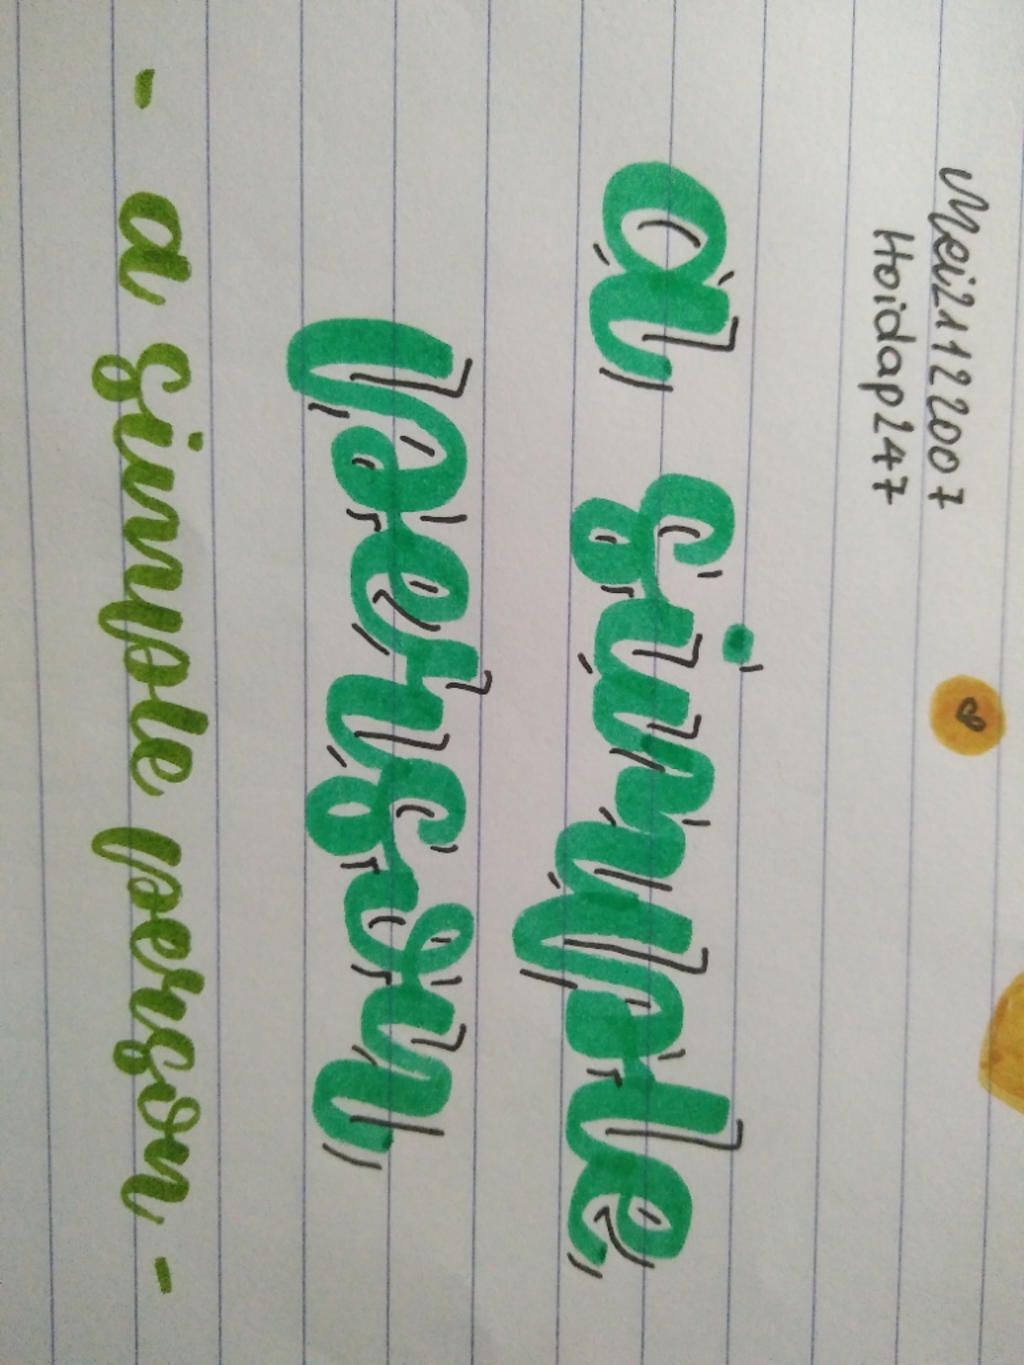 Mei21122007
Hoidap247
a simple
person
- a simple person -